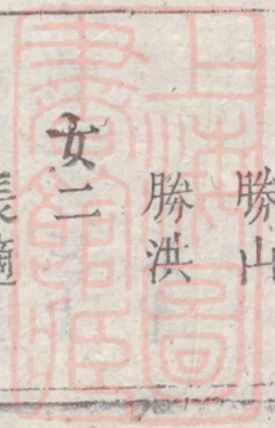 勝山
勝洪
女二
長適
上海圖書館藏